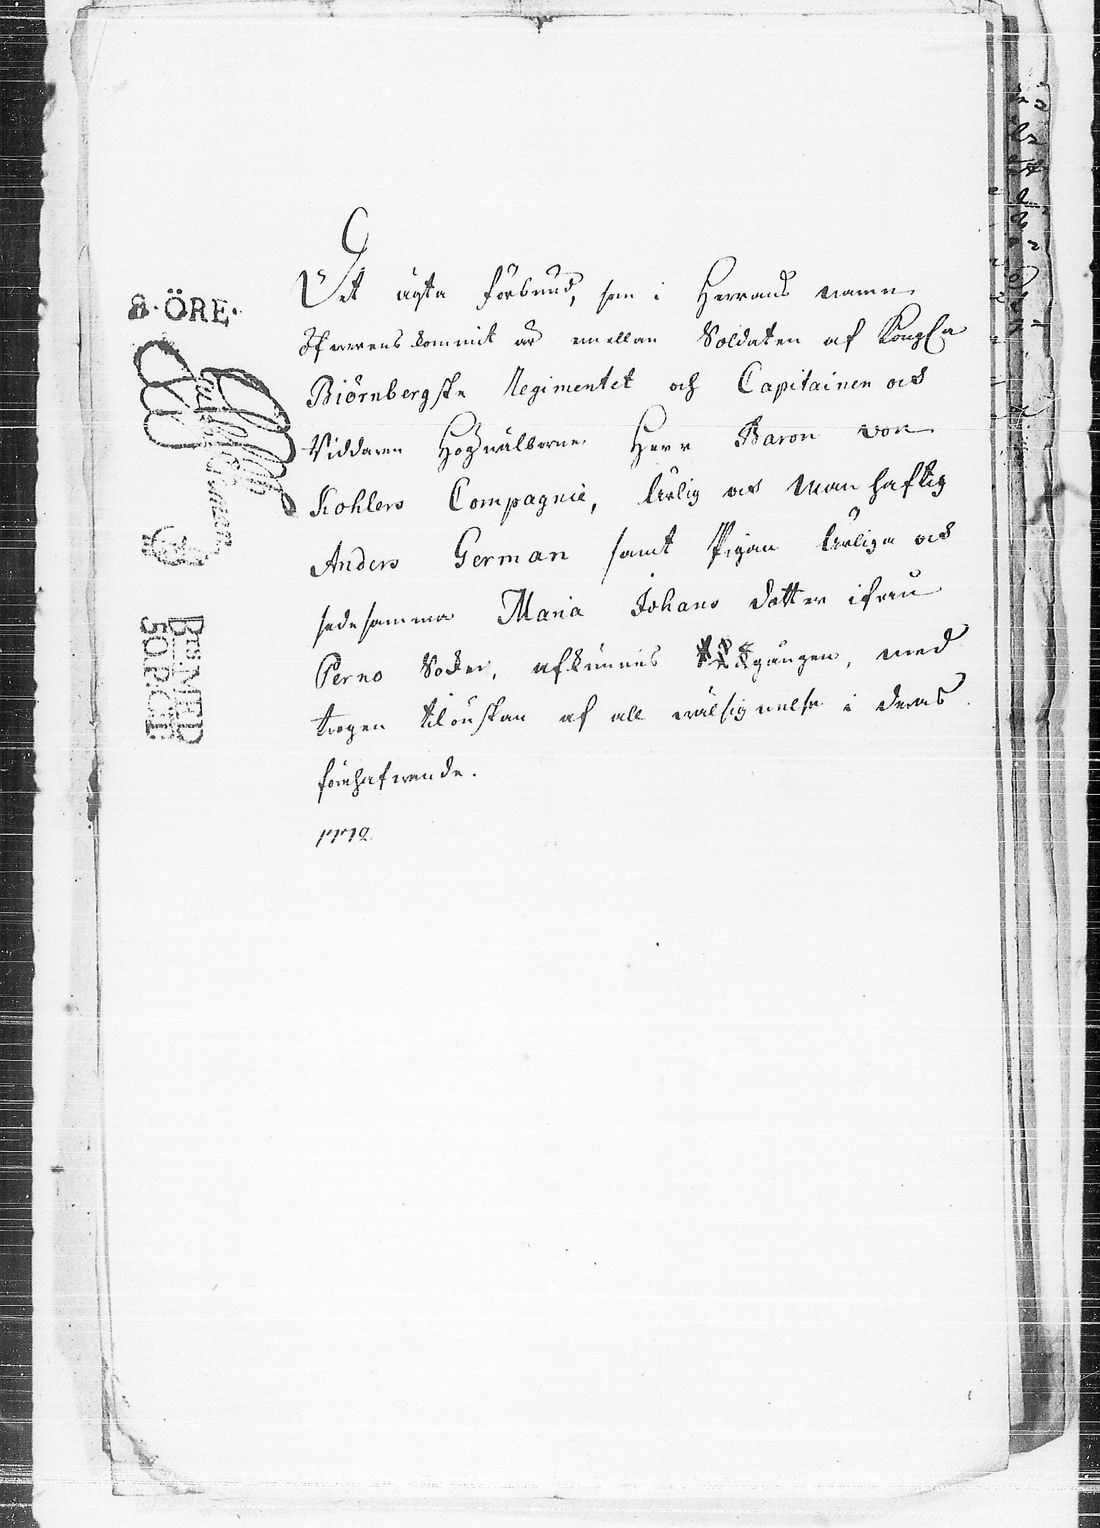 8. ÖRE.
Det ägta förbund, som i Herrans namn
öfwerenskommit är emellan Soldaten af Kongl.a
Biörnbergske Regimentet och Capitainen och
Riddaren Högwälborne Herr Baron von
Kohlers Compagnie, Ärlig och Manhaftig
Anders German samt Pigan Ärliga och
sedesamma Maria Johans dotter ifrån
Perno Soken, afkunnes gången, med
trogen tilönskan af all wälsignelse i deras
förehafwande.
1772
BEST.MED
50.P.CT: